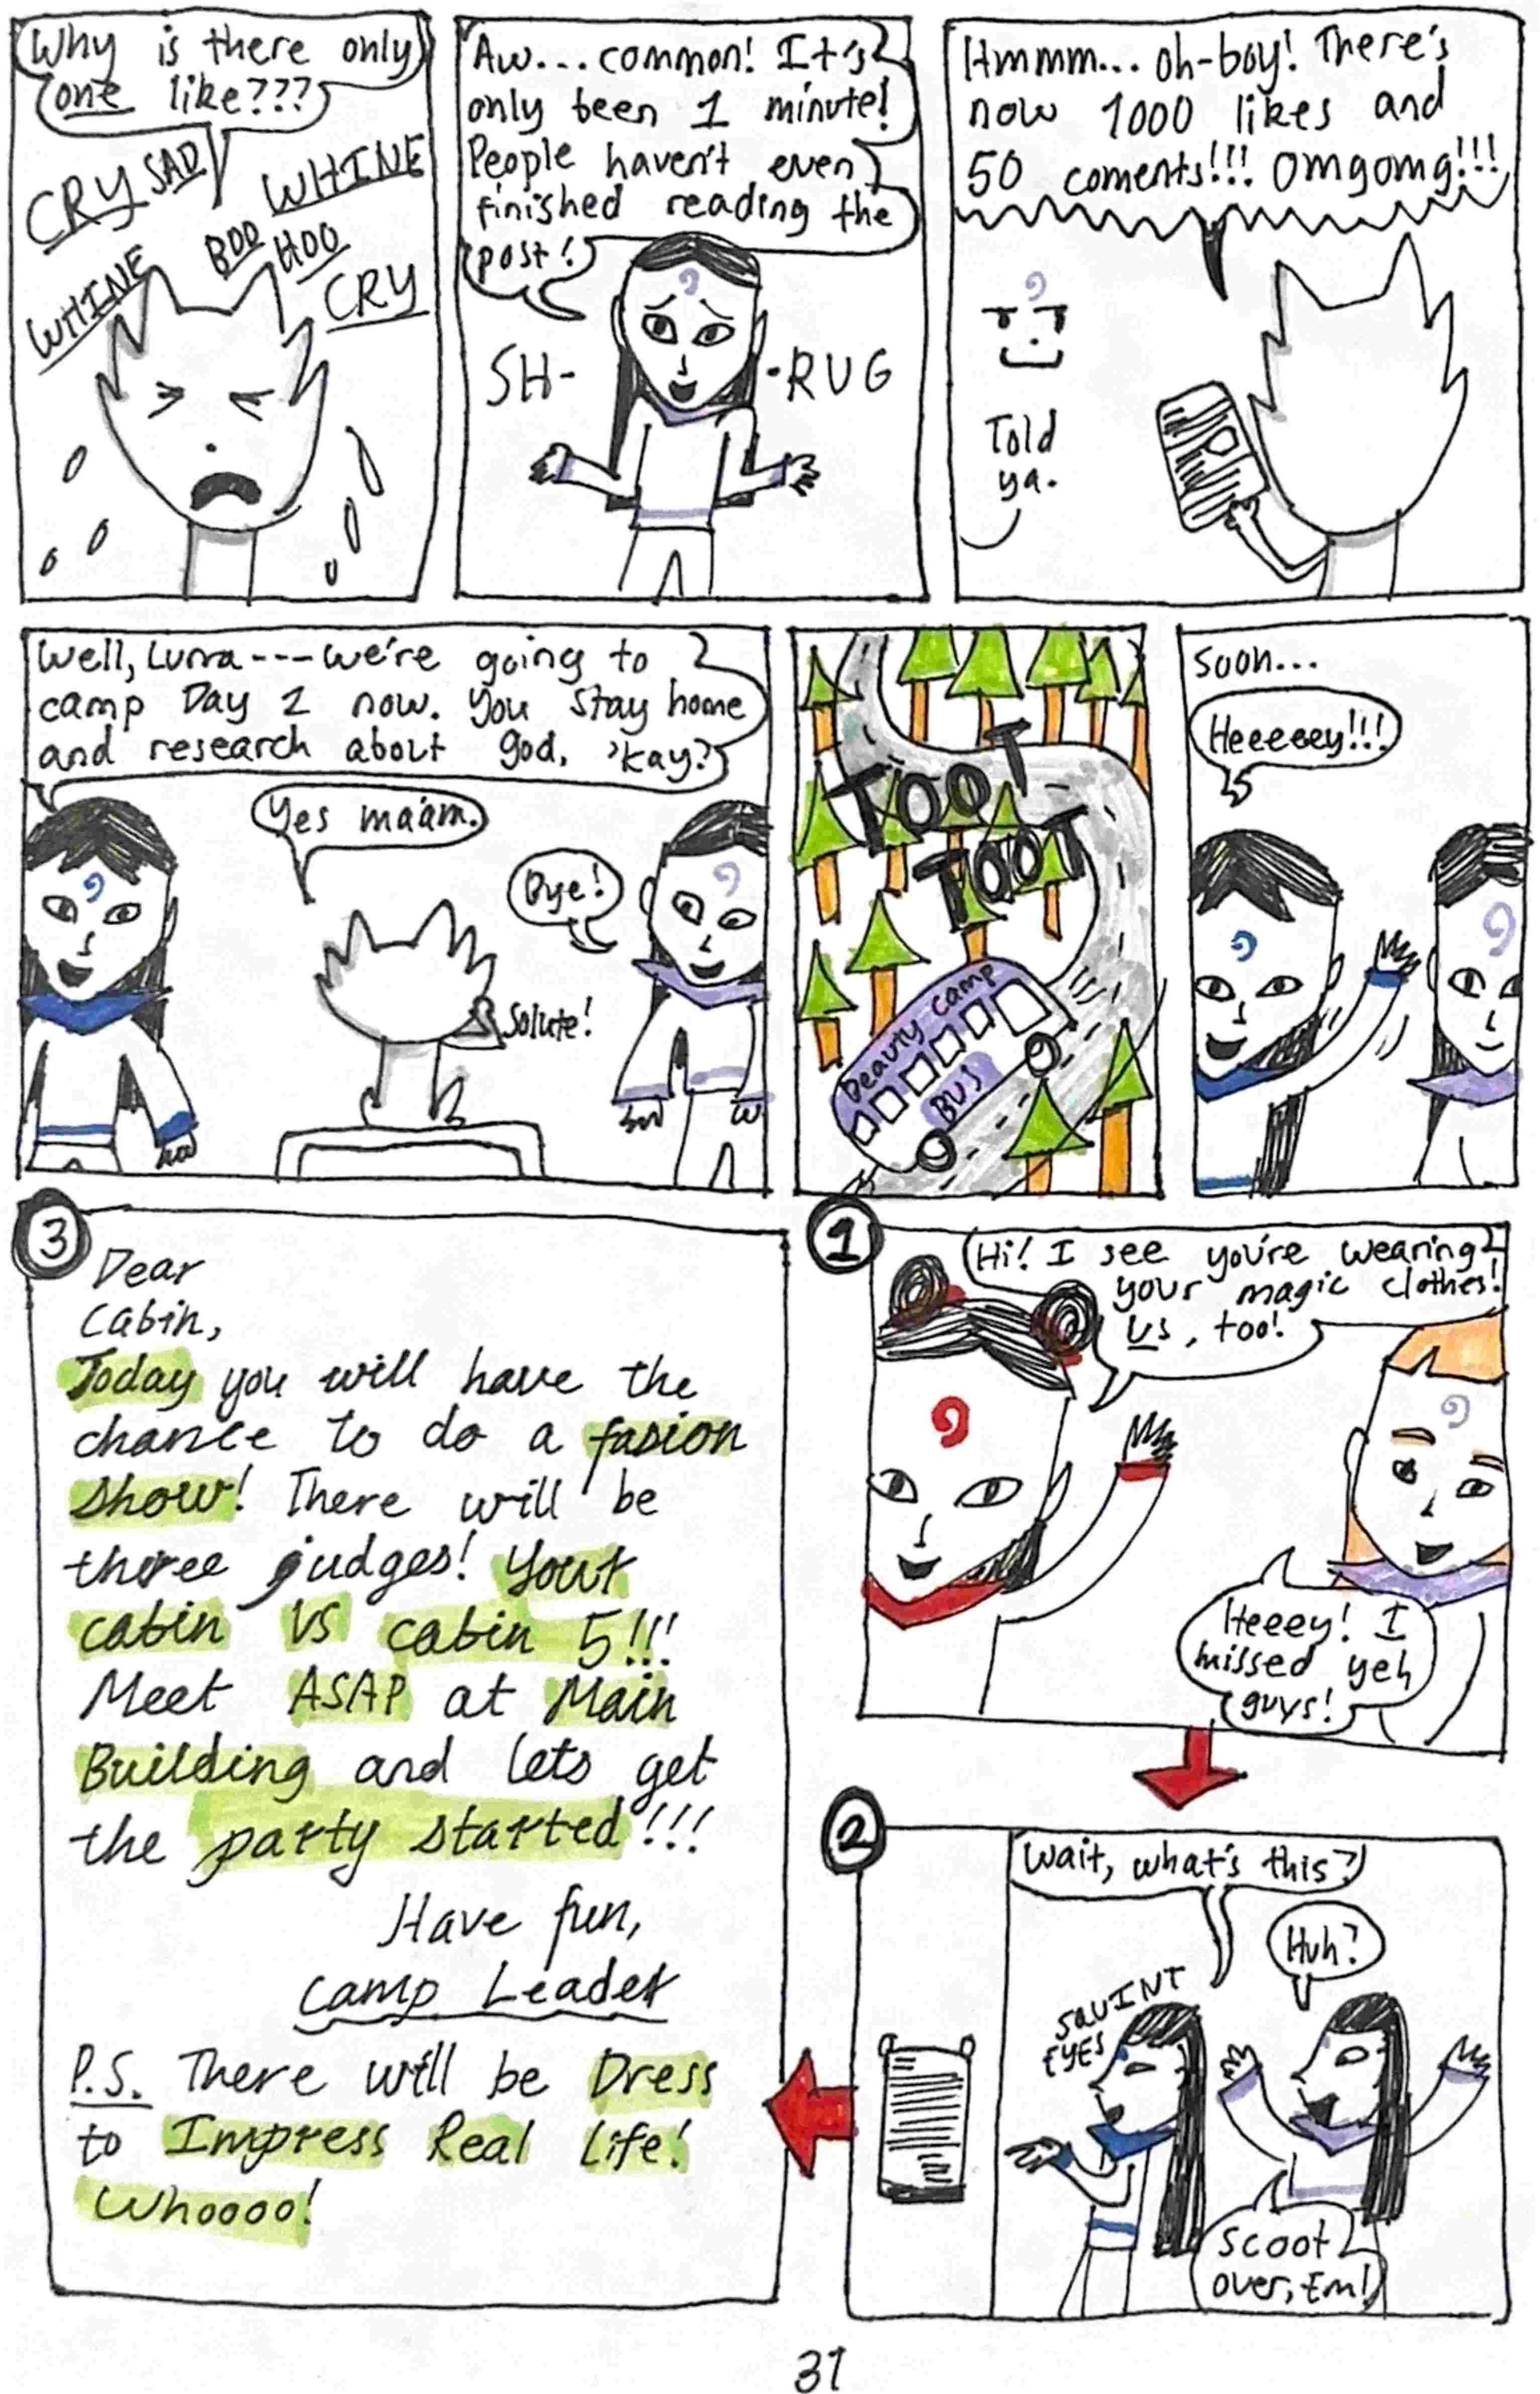 Why is there only
one like???
CRY
SAD
WHINE
WHINE
BOO
HOO
CRY
Aw... common! It's
only been 1 minute!
People haven't even
finished reading the
post!
SH-
-RUG
Hmmm... oh-boy! There's
now 1000 likes and
50 coments!!! Omgomg!!!
Told
ya.
Well, Luna --- we're going to
camp Day 2 now. You stay home
and research about god, 'kay?
Yes ma'am.
Bye!
Solute!
TOOT
TOOT
Beauty camp
BUS
Soon...
Heeeeey!!!
1
Hi! I see you're wearing
your magic clothes!
Us, too!
Heeey! I
missed yeh
guys!
2
Wait, what's this?
Huh?
SQUINT
EYES
Scoot
over, Em!
3
Dear
Cabin,
Today you will have the
chance to do a fasion
show! There will be
three judges! Your
cabin VS cabin 5!!!
Meet ASAP at Main
Building and lets get
the party started!!!
Have fun,
Camp Leader
P.S. There will be Dress
to Impress Real Life!
Whoooo!
31